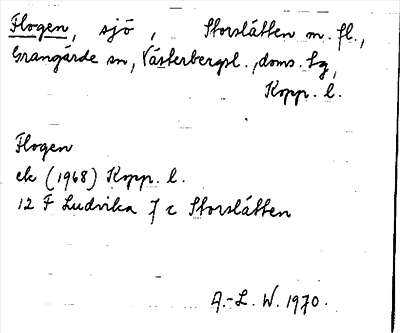 Flogen, sjö, Storslätten m. fl.,
Grangärde sn, Västerbergsl., doms. lg,
Kopp. l.
Flogen
ek (1968) Kopp. l.
12 F Ludvika 7 c Storslätten
A.-L. W. 1970.